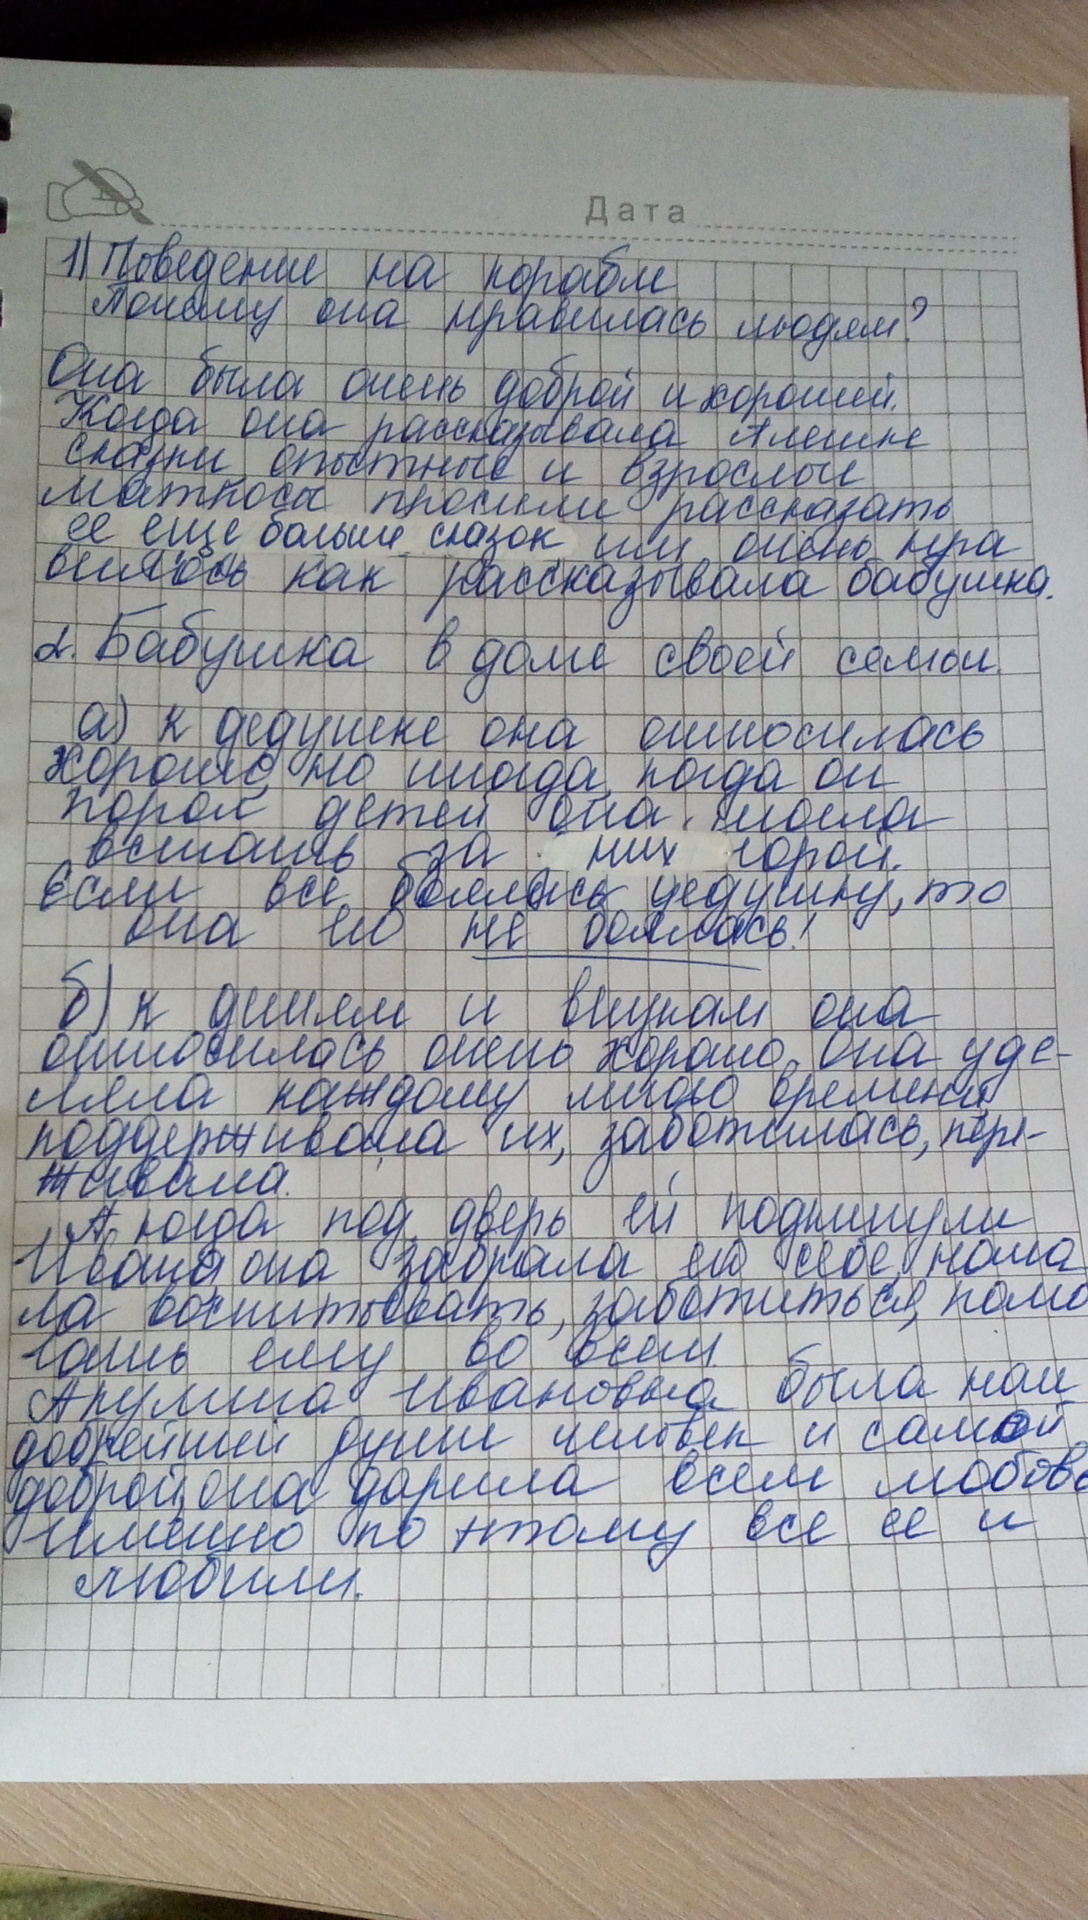 Дата
1) Поведение на корабле
Почему она нравилась людям?
Она была очень доброй и хорошей.
Когда она рассказывала Алешке
сказки опытные и взрослые
матросы просили рассказать
ее еще больше сказок им очень нра
вилось как рассказывала бабушка.
2. Бабушка в доме своей семьи.
а) к дедушке она относилась
хорошо, но иногда, когда он
порол детей она могла
встать за них горой.
если все боялись дедушку, то
она его не боялась!
б) к детям и внукам она
относилась очень хорошо, она уде-
ляла каждому много времени
поддерживала их, заботилась, пере-
живала.
А когда под дверь ей подкинули
Ивана она забрала его себе, нача
ла воспитывать, заботиться, помо
гать ему во всем.
Акулина Ивановна была наи
добрейшей души человек и самой
доброй, она дарила всем любовь
Именно по этому все ее и
любили.